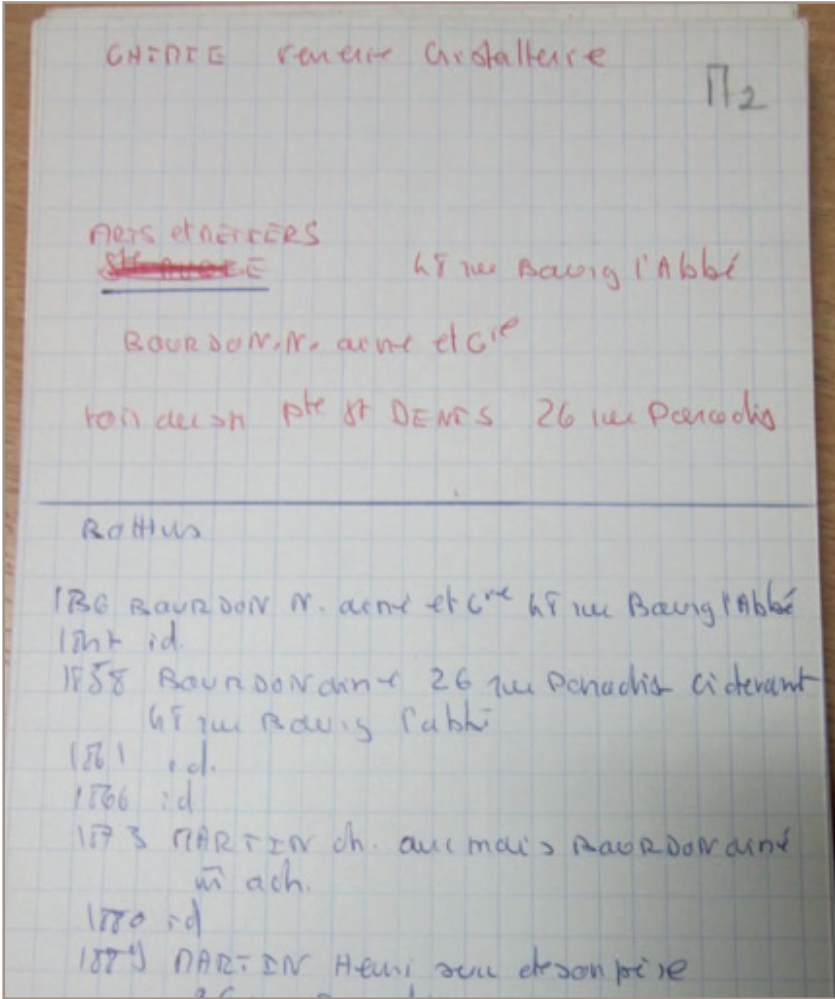 CHIMIE verrerie Cristallerie
M2
ARTS et METIERS
48 rue Bourg l'Abbé
BOURDON. N. ainé et Cie
pte St DENIS 26 rue Paradis
Bottins
BOURDON N. ainé et Cie 48 rue Bourg l'Abbé
id.
1858 BOURDON ainé 26 rue Paradis ci devant
48 rue Bourg l'abbé
1861 id.
1866 id
1873 MARTIN ch. anc mais BOURDON ainé
m ach.
1880 id
1889 MARTIN Henri succ de son père